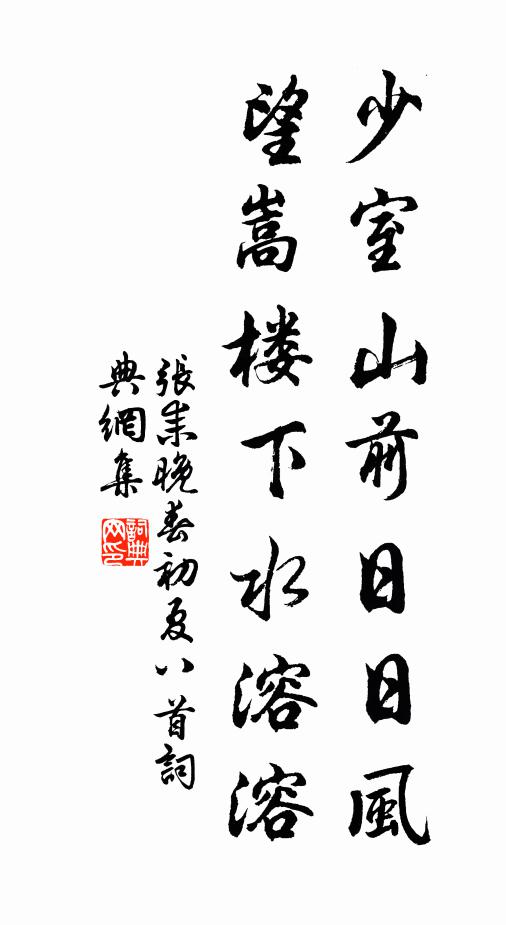 少室山前日日風
望嵩楼下水溶溶
張耒晚春初夏八首詞
典網集
詞典网印